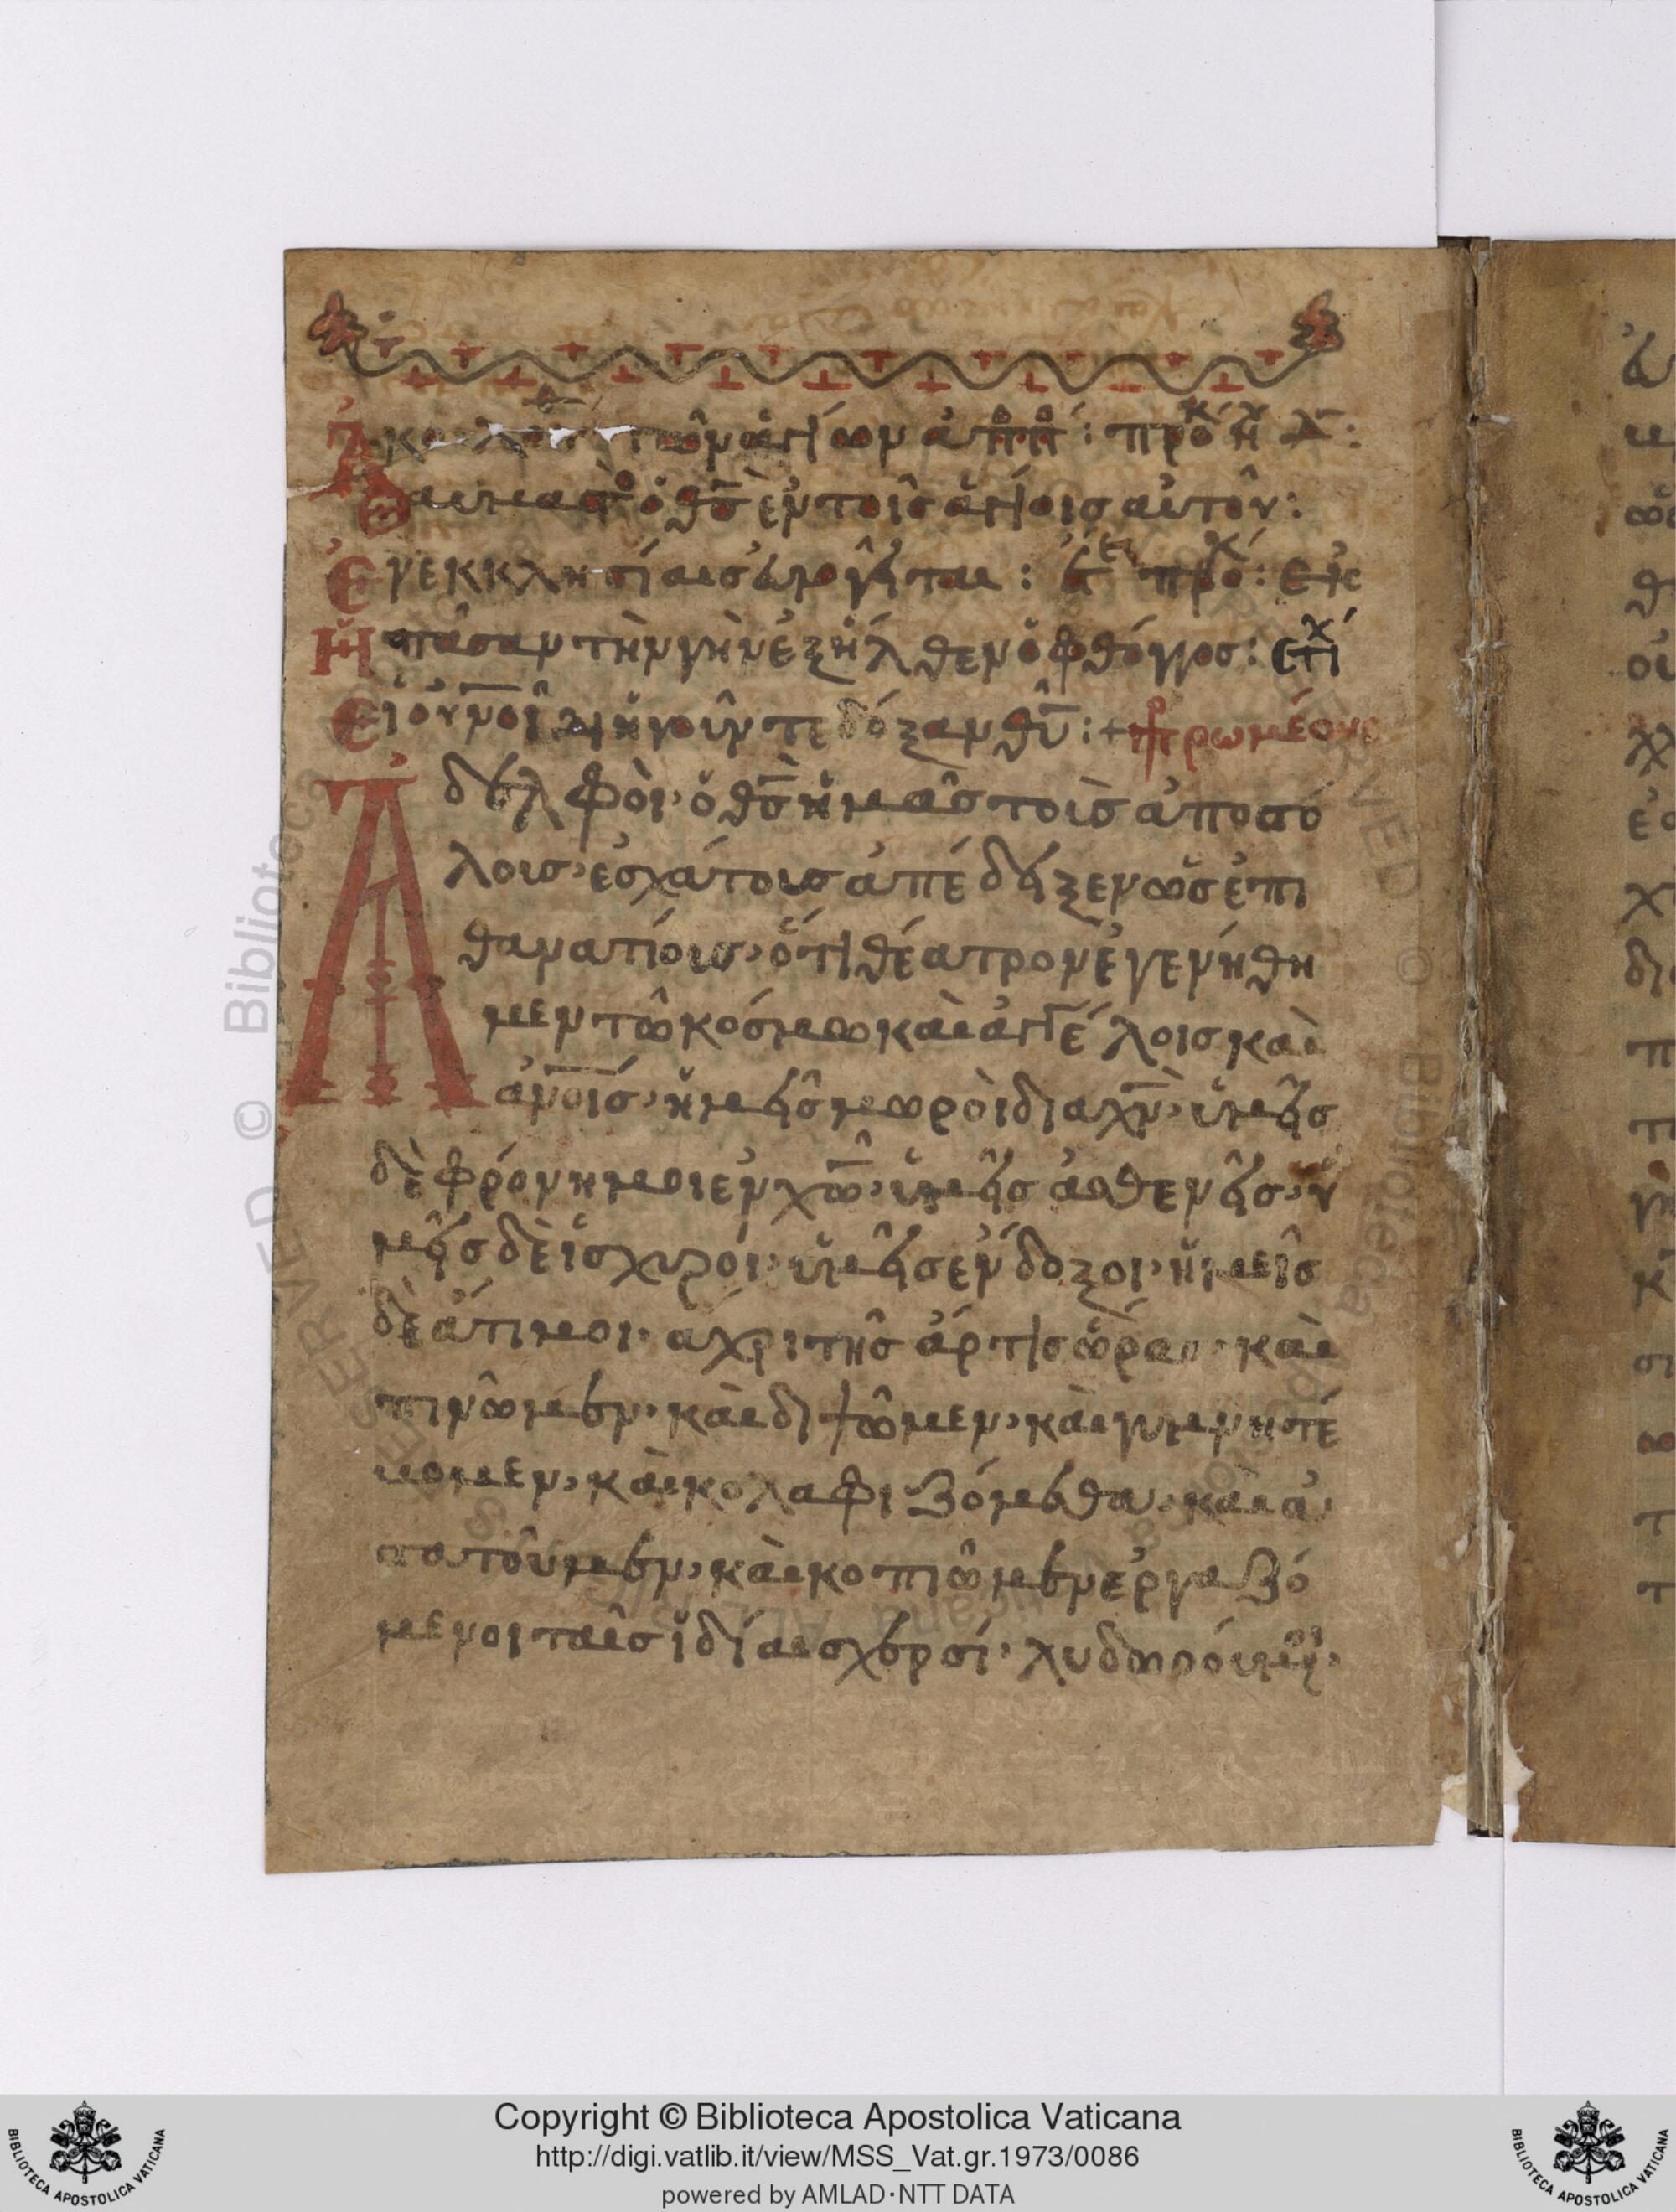 Ἀκολουθ τῶν ἁγίων ἀππ: προκ ἠχ δ:
Θαυμαστὸ ὁ θς ἐν τοῖς ἁγίοις αὐτοῦ:
Ἐν ἐκκλησίαις εὐλογεῖται: προκ: εἰς
πᾶσαν τὴν γὴν ἐξῆλθεν ὁ φθόγγος: στιχ
οἱ οὐνοὶ διηγοῦνται δόξαν θῦ: + πρ ρωμέους
Ἀδελφοὶ· ὁ θς ἡμᾶς τοὶς ἀποστό
λοις· ἐσχάτους ἀπέδειξεν ὡς ἐπι
θανατίοις· ὅτι θέατρον ἐγενήθη
μεν τῶ κόσμω καὶ ἀγγέλοις καὶ
ἀνοις· ἡμεῖς μωρὸι διὰ χν· ὑμεῖς
δὲ φρόνημοι ἐν χω· ὑμεῖς ἀσθενεῖς· ὑ
μεῖς δὲ ἰσχυρόι· ὑμεῖς ἔνδοξοι· ἡμεῖς
δὲ ἄτιμοι· αχρι τῆς ἄρτι ὥρας· καὶ
πινῶμεν· καὶ διψῶμεν· καὶ γυμνητέ
υομεν· καὶ κολαφιζόμεθα· καὶ ἀ
στατοῦμεν· καὶ κοπιῶμεν ἐργαζό
μενοι ταῖς ἰδίαις χερσί· λυδωρόυμεν·
Copyright © Biblioteca Apostolica Vaticana
http://digi.vatlib.it/view/MSS_Vat.gr.1973/0086
powered by AMLAD·NTT DATA
BIBLIOTECA APOSTOLICA VATICANA
BIBLIOTECA APOSTOLICA VATICANA